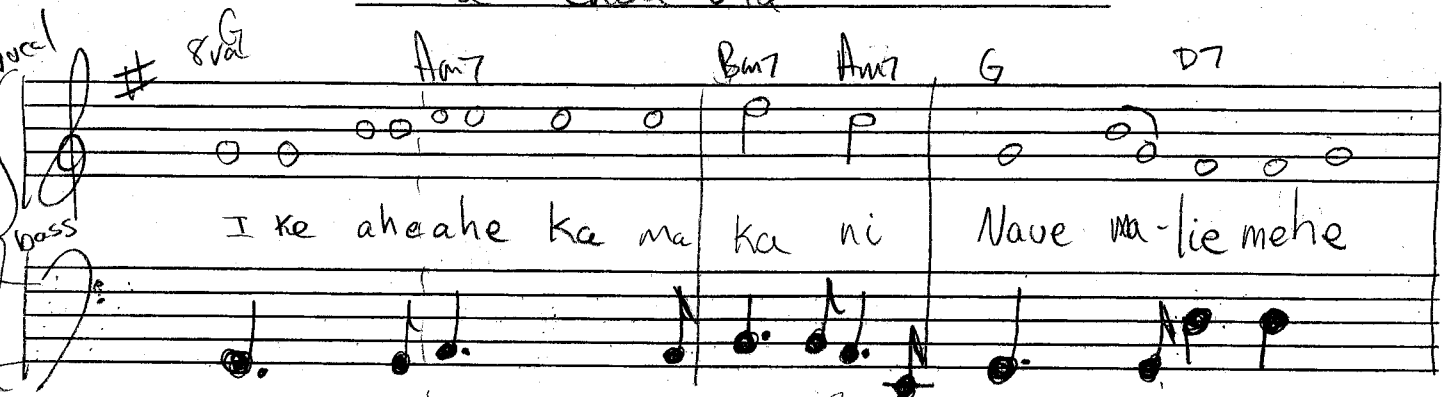 vocal
8va G Am7 Bm7 Am7 G D7
I ke aheahe ka ma ka ni Naue ma-lie mehe
bass